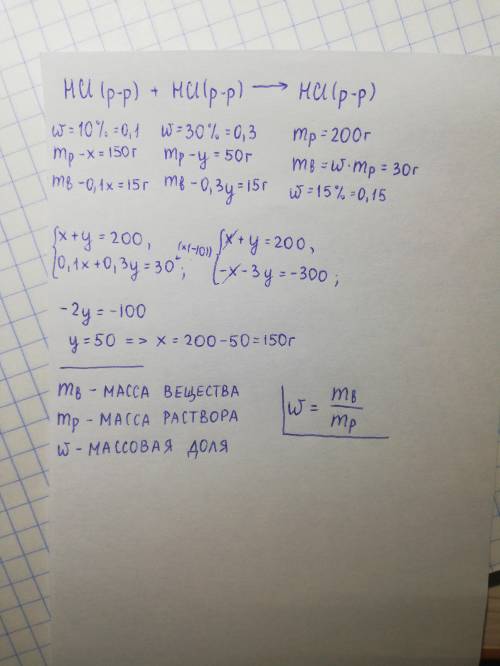 HCl (р-р) + HCl (р-р) ⟶ HCl (р-р)
ω = 10% = 0,1 ω = 30% = 0,3 mр = 200г
mр - x = 150г mр - y = 50г mв = ω · mр = 30г
mв - 0,1x = 15г mв - 0,3y = 15г ω = 15% = 0,15
{x + y = 200, (x(-10)) {x + y = 200,
0,1x + 0,3y = 30; -x - 3y = -300;
-2y = -100
y = 50 => x = 200 - 50 = 150г
mв - МАССА ВЕЩЕСТВА
mр - МАССА РАСТВОРА
ω = mв / mр
ω - МАССОВАЯ ДОЛЯ